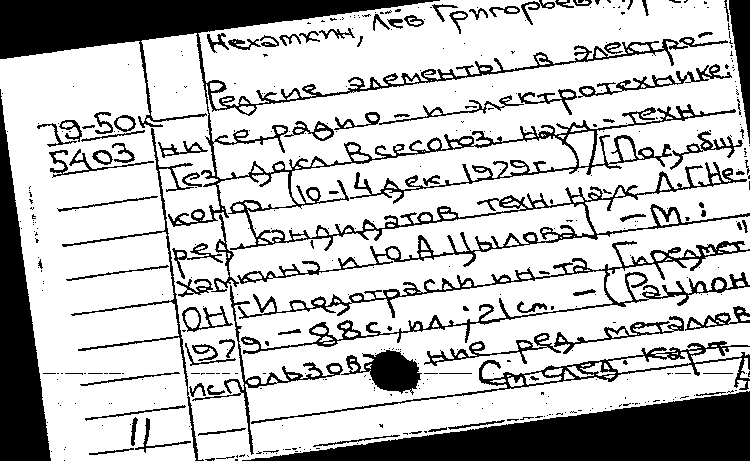 Нехамкин, Лев Григорьевич, ред.
Редкие элементы в электро-
79-50к
нике, радио- и электротехнике:
5403
Тез. докл. Всесоюз. науч.-техн.
конф. (10-14 дек. 1979г.) / [Под общ.
ред. кандидатов техн. наук Л.Г.Не-
хамкина и Ю.А Цылова]. - М.:
ОНТИ подотрасли ин-та „Гиредмет"
1979. - 88с., ил.; 21 см. - (Рацион
использование ред. металлов
См. след. карт
11